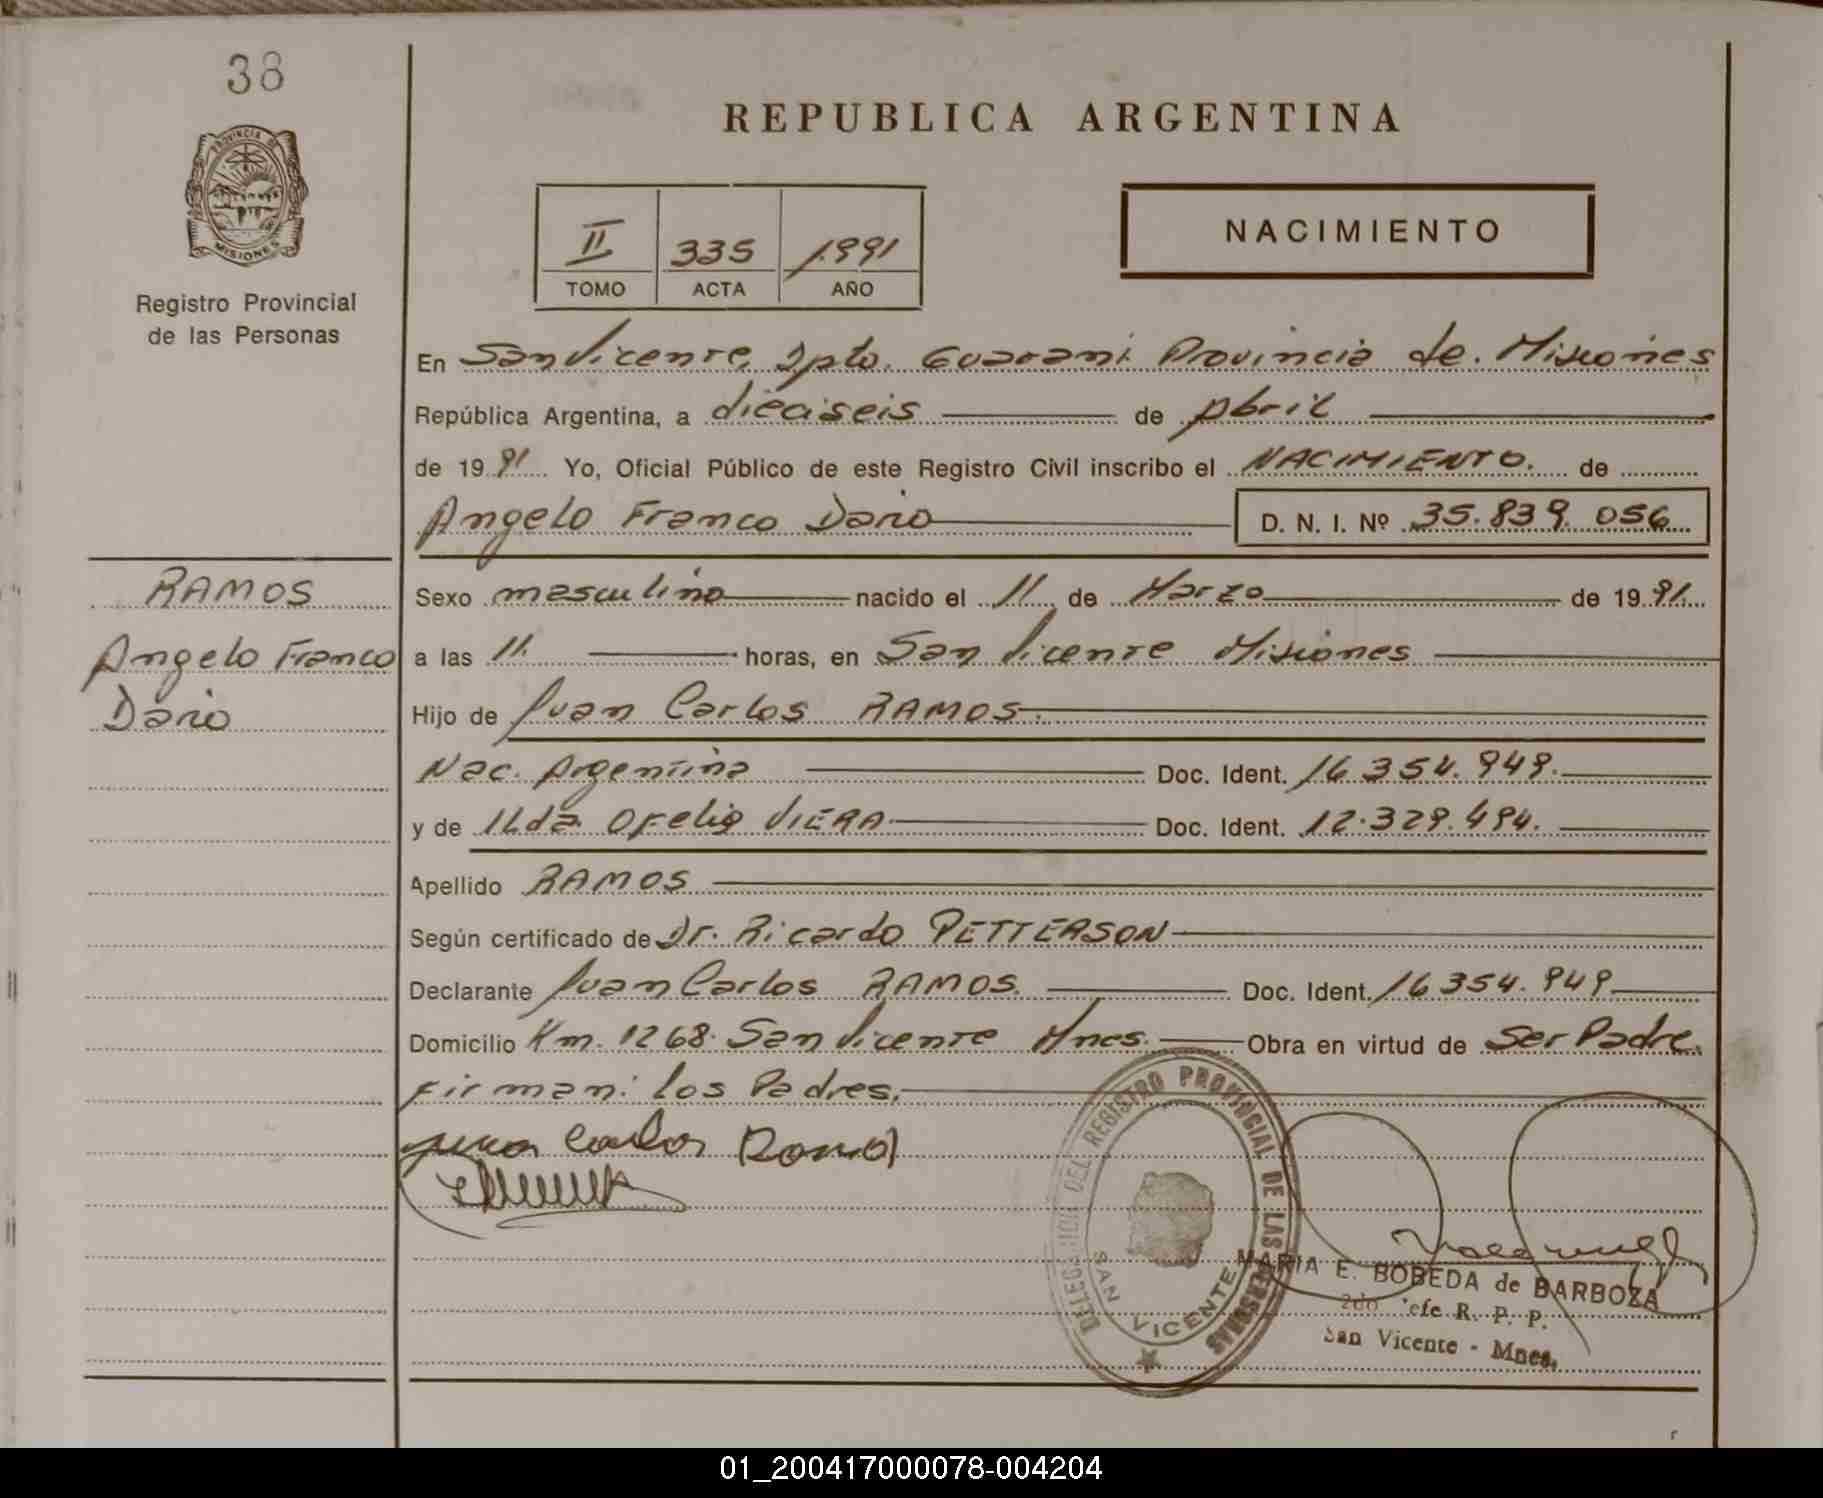 38
PROVINCIA DE
MISIONES
Registro Provincial
de las Personas
RAMOS
Angelo Franco
Dario
REPUBLICA ARGENTINA
II 335 1991
TOMO ACTA AÑO
NACIMIENTO
En San Vicente, Dpto. Guarani Provincia de Misiones
República Argentina, a dieciseis de Abril
de 1991 Yo, Oficial Público de este Registro Civil inscribo el NACIMIENTO. de
Angelo Franco Dario D. N. I. Nº 35.839.056
Sexo masculino nacido el 11 de Marzo de 1991
a las 11. horas, en San Vicente Misiones
Hijo de Juan Carlos RAMOS.
Nac. Argentina Doc. Ident. 16.354.949.
y de Ilda Ofelia VIERA Doc. Ident. 12.329.494.
Apellido RAMOS
Según certificado de Dr. Ricardo PETTERSON
Declarante Juan Carlos RAMOS. Doc. Ident. 16.354.949
Domicilio Km. 1268. San Vicente Mnes. Obra en virtud de Ser Padre.
Firman: los Padres.
Juan Carlos Ramos
DELEGACION DEL REGISTRO PROVINCIAL DE LAS PERSONAS
SAN VICENTE
MARIA E. BOBEDA de BARBOZA
2do Jefe R. P. P.
San Vicente - Mnes.
01_200417000078-004204